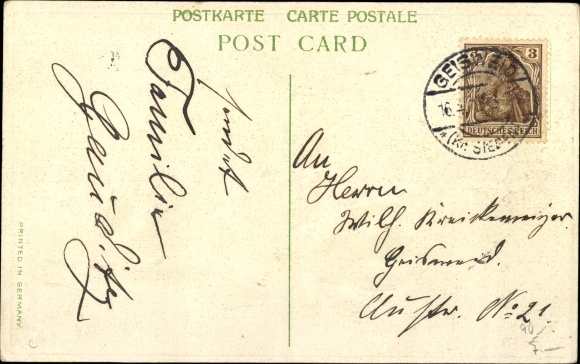 POSTKARTE CARTE POSTALE
POST CARD
sendet
Familie
PRINTED IN GERMANY
GEISWEID
16.
* (Kr. SIEG
3
DEUTSCHES REICH
An
Herrn
Wilh. Kreickemeijer.
Geisweid.
Austr. No 21.